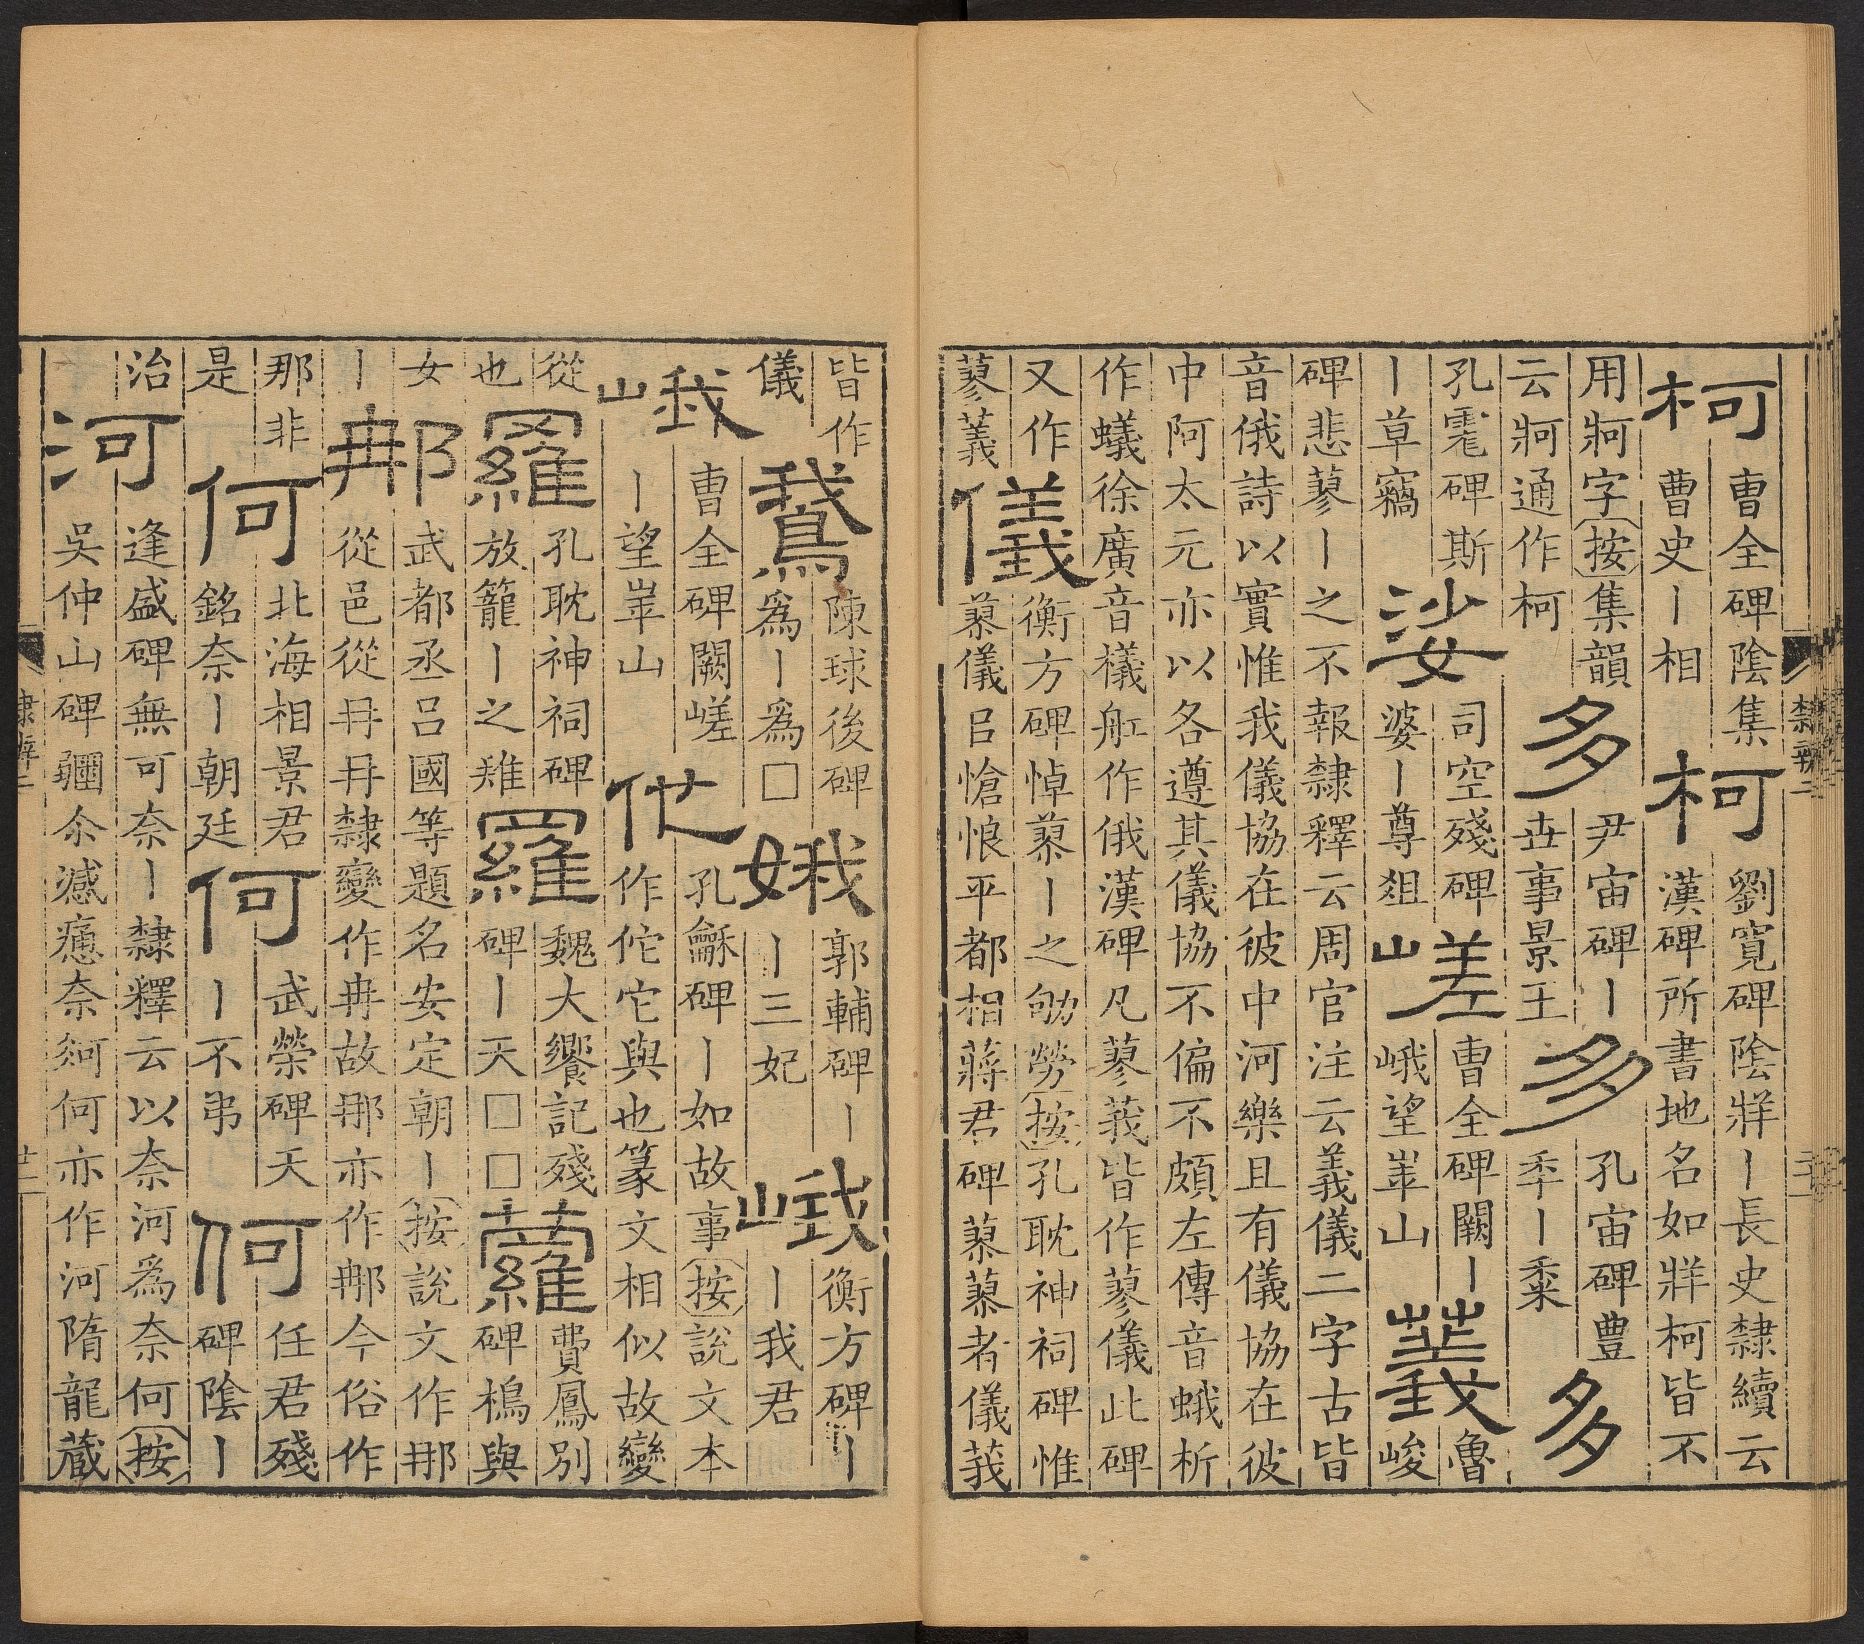 柯
曹全碑陰集
曹史丨相
柯
劉寬碑陰牂丨長史隸續云
漢碑所書地名如牂柯皆不
用牁字按集韻
云牁通作柯
多
尹宙碑丨
世事景王
多
孔宙碑豊
秊丨黍
多
孔雩碑斯
丨草竊
娑
司空殘碑
婆丨尊爼
嵯
曹全碑闕丨
峨望崋山
義
魯
峻
碑悲蓼丨之不報隸釋云周官注云義儀二字古皆
音俄詩以實惟我儀協在彼中河樂且有儀協在彼
中阿太元亦以各遵其儀協不偏不頗左傳音蛾析
作蟻徐廣音檥舡作俄漢碑凡蓼莪皆作蓼儀此碑
又作
蓼義
儀
衡方碑悼蓼丨之劬勞按孔耽神祠碑惟
蓼儀㠯愴悢平都相蔣君碑蓼蓼者儀莪
皆作
儀
鵞
陳球後碑
爲丨爲□
娥
郭輔碑丨
丨三妃
峨
衡方碑丨
丨我君
峨
曹全碑闕嵯
丨望崋山
他
孔龢碑丨如故事按說文本
作佗它與也篆文相似故變
從
也
羅
孔耽神祠碑
放籠丨之雉
羅
魏大饗記殘
碑丨天□□
蘿
費鳳別
碑樢與
女
丨
那
武都丞呂國等題名安定朝丨按說文作𨙻
從邑從冄冄隸變作冉故那亦作𨙻今俗作
那非
是
何
北海相景君
銘奈丨朝廷
何
武榮碑天
丨不弔
何
任君殘
碑陰丨
治
河
逢盛碑無可奈丨隸釋云以奈河爲奈何按
吳仲山碑疆余感癔奈何何亦作河隋龍蔵
隸辨二